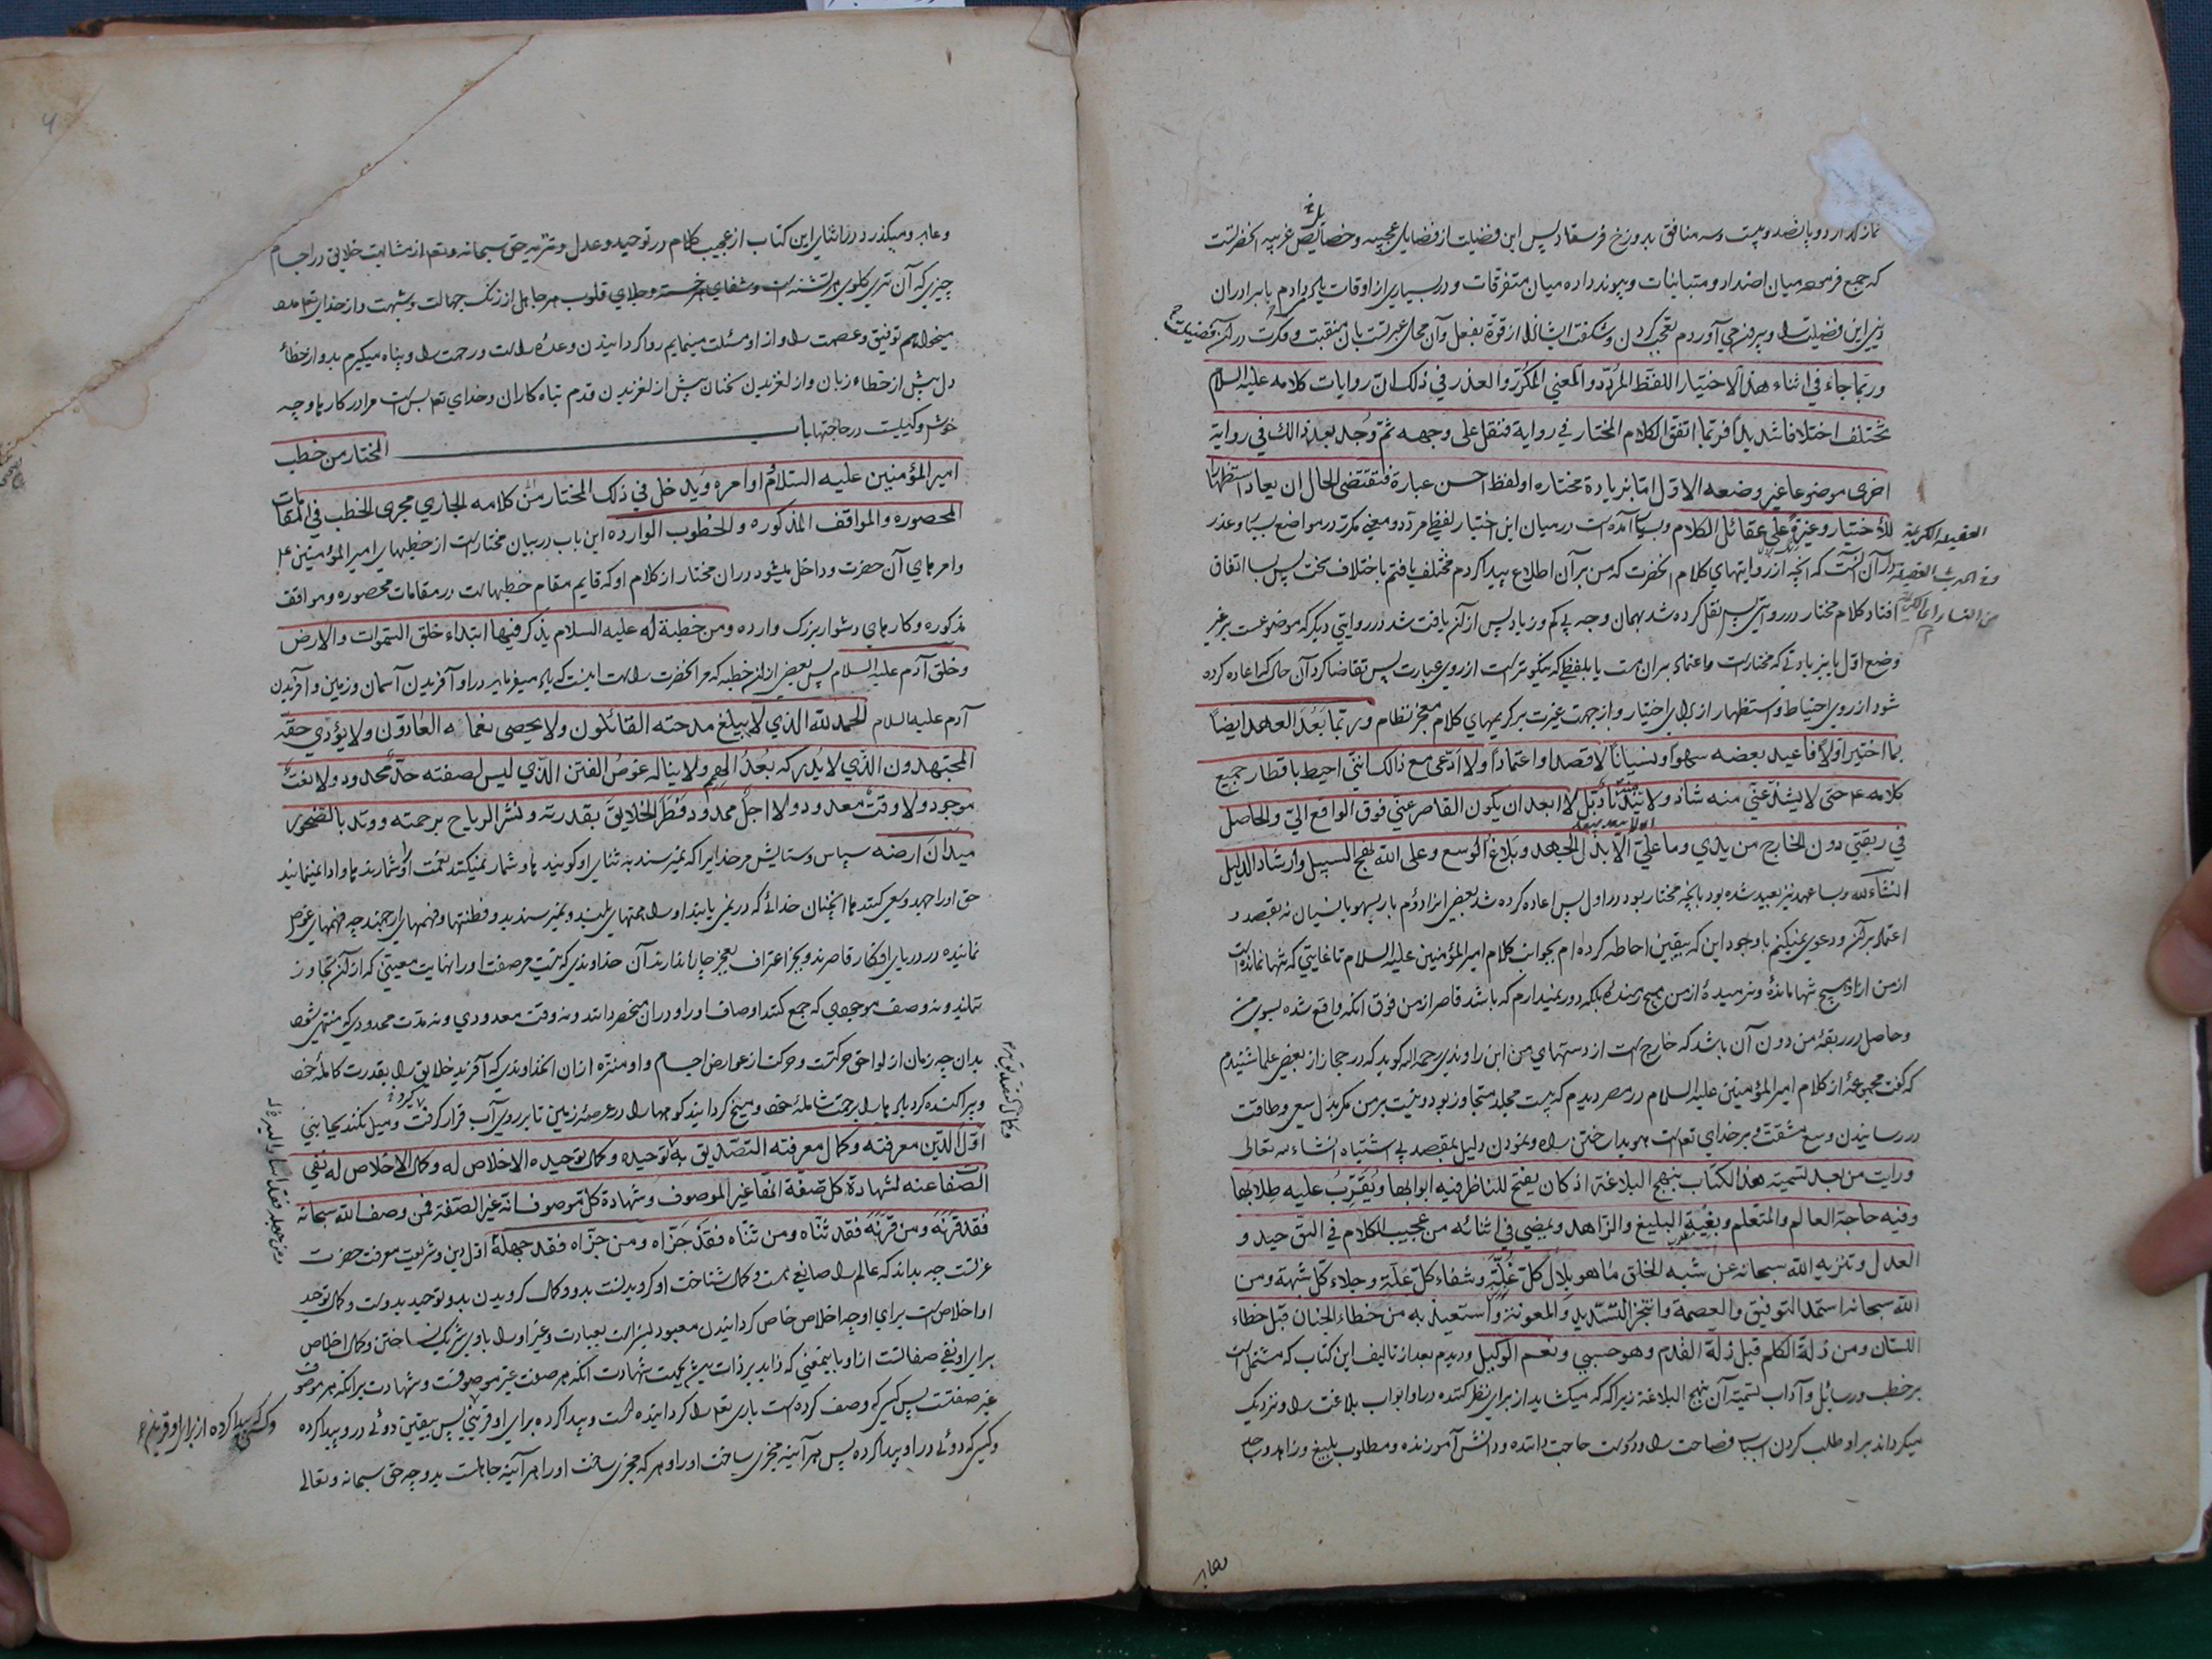 نماز گذارد و پانصد و بیست و سه منافق بدوزخ فرستاد پس این فضیلت از فضایل عجیبه و خصایص غریبه آنحضرتست
که جمع فرموده میان اضداد و متباینات و پیوند داده میان متفرقات و در بسیاری از اوقات یاد می دادم با برادران
دینی این فضیلت را و بیرون می آوردم تعجب کردن و شگفت ایشانرا از قوة بفعل وآن محل عبرتست بآن منقبت و فکرت در آن فضیلت
وربما جاء في اثناء هذا الاختيار اللفظ المردد والمعني المكرر والعذر في ذلك ان روايات كلامه عليه السلام
تختلف اختلافا شديدا فربما اتفق الكلام المختار في رواية فنقل على وجهه ثم وجد بعد ذالك في رواية
اخرى موضوعا غير وضعه الاول اما بزيادة مختاره او لفظ احسن عبارة فتقتضي الحال ان يعاد استظهارا
للأختيار وغيرة على عقائل الكلام و بسا آمده است در میان این اختیار لفظ مردد و معنی مکرر در مواضع بسیار و عذر
در آن آنست که آنچه از روایتهای کلام آنحضرت که من بر آن اطلاع پیدا کردم مختلف یافتم باختلاف سخت پس بسا اتفاق
افتاد کلام مختار در روایتی پس نقل کرده شد بهمان وجه بی کم و زیاد پس از آن یافت شد در روایتی دیگر که موضوعست بر غیر
وضع اول یا بزیادتی که مختارست و اعتماد بران هست یا بلفظی که نیکوترست از روی عبارت پس تقاضا کرد آن حال که اعاده کرده
شود از روی احتیاط و استظهار از برای اختیار و از جهت غیرت بر کریمهای کلام معجز نظام وربما بعد العهد ايضاً
بما اختير اولاً فاعيد بعضه سهواً ونسياناً لا قصدا واعتماداً ولا ادعى مع ذالك انني احيط باقطار جميع
كلامه ع حتى لا يشذ عني منه شاذ ولا يند ناد بل لا ابعد ان يكون القاصر عني فوق الواقع الي والحاصل
في ربقتي دون الخارج من يدي وما علي الا بذل الجهد وبلاغ الوسع وعلى الله نهج السبيل وارشاد الدليل
انشاء الله و بسا عهد نیز بعید شده بود بآنچه مختار بود در اول پس اعاده کرده شد بعضی ازو دوم بار بسهو یا نسیان نه بقصد و
اعتماد بر آن و دعوی نمیکنم با وجود این که بیقین احاطه کرده ام بجوانب کلام امیر المؤمنین علیه السلام تا غایتی که تنها نمانده است
از من ازو هیچ تنها مانده و نرمیده از من هیچ رمنده بلکه دور نمیدارم که باشد قاصر از من فوق آنکه واقع شده بسوی من
و حاصل در ربقهٔ من دون آن باشد که خارج است از دستهای من ابن راوندی رحمه الله گوید که در حجاز از بعضی علما شنیدم
که گفت مجموعهٔ از کلام امیر المؤمنین علیه السلام در مصر دیدم که بیست مجلد متجاوز بود و نیست بر من مگر بذل سعی و طاقت
در رسانیدن وسع مشقت و بر خدای تعالی است هویدا ساختن راه و نمودن دلیل بمقصد بی اشتباه انشاء الله تعالی
ورايت من بعد تسمية هذا الكتاب بنهج البلاغة اذ كان يفتح للناظر فيه ابوابها ويقرب عليه طلابها
وفيه حاجة العالم والمتعلم وبغية البليغ والزاهد ويمضي في اثنائه من عجيب الكلام في التوحيد و
العدل وتنزيه الله سبحانه عن شبه الخلق ما هو بلال كل غلة وشفاء كل علة وجلاء كل شبهة ومن
الله سبحانه استمد التوفيق والعصمة واتنجز التسديد والمعونة واستعيذ به من خطاء الجنان قبل خطاء
اللسان ومن زلة الكلم قبل زلة القدم وهو حسبي ونعم الوكيل و دیدم بعد از تالیف این کتاب که مشتمل است
بر خطب و رسائل و آداب تسمیهٔ آن بنهج البلاغة زیرا که که میگشاید از برای نظر کننده در او ابواب بلاغت را و نزدیک
میگرداند بر او طلب کردن اسباب فصاحت را و دروست حاجت داننده و دانش آموزنده و مطلوب بلیغ و زاهد و
العقیله الکریمة
و عابد و میگذرد در اثنای این کتاب از عجیب کلام در توحید و عدل و تنزیه حق سبحانه و تعالی از مشابهت خلایق در اجسام
چیزی که آن تری گلوی هر تشنه است و شفای هر خسته و جلای قلوب هر جاهل از زنگ جهالت و شبهت و از خدای تعالی مدد
میخواهم توفیق و عصمت را و از او مسئلت مینمایم روا گردانیدن وعده راست و رحمت را و پناه میگیرم بدو از خطاء
دل پیش از خطاء زبان و از لغزیدن سخنان پیش از لغزیدن قدم تباه کاران و خدای تعالی بس است مرا در کارها و چه
خوش وکیلیست در حاجتها باب المختار من خطب
امير المؤمنين عليه السلام اوامره ويدخل في ذلك المختار من كلامه الجاري مجرى الخطب في المقامات
المحصوره والمواقف المذكوره والخطوب الوارده این باب در بیان مختارست از خطبهای امیر المؤمنین ع
و امرهای آن حضرت و داخل میشود دران مختار از کلام او که قایم مقام خطبهاست در مقامات محصوره و مواقف
مذکوره و کارهای دشوار بزرک وارده ومن خطبة له عليه السلام يذكر فيها ابتداء خلق السموات والارض
وخلق آدم علیه السلام پس بعضی از آن خطبه که مر آنحضرت راست اینست که یاد میفرماید در او آفریدن آسمان و زمین و آفریدن
آدم علیه السلام الحمد لله الذي لا يبلغ مدحته القائلون ولا يحصى نعمائه العادون ولا يؤدي حقه
المجتهدون الذي لا يدركه بعد الهمم ولا يناله غوص الفتن الذي ليس لصفته حد محدود ولا نعت
موجود ولا وقت معدود ولا اجل ممدود فطر الخلايق بقدرته ونشر الرياح برحمته ووتد بالصخور
ميدان ارضه سپاس و ستایش مر خدایرا که نمیرسند به ثنای او گویندها و شمار نمیکنند نعمت او را شمارندها و ادا نمینمایند
حق او را جهد و سعی کنندها آنچنان خدائی که در نمی یابند او را همتهای بلند و نمیرسند بدو فطنتها و فهمهای ارجمند چه فهمهای غوص
نماینده در دریای افکار قاصرند و بجز اعتراف بعجز چاره ندارند آن خداوندی که نیست مر صفت او را نهایت معینی که از آن تجاوز
نکند و نه وصف موجودی که جمع کند اوصاف او را و دران منحصر داند و نه وقت معدودی و نه مدت محدودی که منتهی شود
بدان چه زمان از لواحق حرکتست و حرکت از عوارض اجسام و او منزه ازان آنخداوندی که آفرید خلایق را بقدرت کاملهٔ خود
و پراکنده کرد بادها را برحمت شاملهٔ خود و میخ گردانید کوهها را در عرصهٔ زمین تا بر روی آب قرار گرفت و میل نکند بجانبی
اول الدين معرفته وكمال معرفته التصديق به توحيده وكمال توحيده الاخلاص له وكمال الاخلاص له نفي
الصفا عنه لشهادة كل صفة انها غير الموصوف وشهادة كل موصوف انه غير الصفة فمن وصف الله سبحانه
فقد قرنه ومن قرنه فقد ثناه ومن ثناه فقد جزاه ومن جزاه فقد جهله اول دین و شریعت معرفت حضرت
عزتست چه بداند که عالم را صانعی هست و کمال شناخت او گرویدنست بدو و کمال گرویدن بدو توحید بدوست و کمال توحید
او اخلاص است برای او چه اخلاص خاص گردانیدن معبود بسزاست بعبادت و غیر او را با وی شریک نساختن و کمال اخلاص
برای او نفی صفاتست ازو باینمعنی که زاید بر ذات نیست بجهت شهادت آنکه هر صفت غیر موصوفست و شهادت بر آنکه هر موصوف
غیر صفتست پس کسی که وصف کرده است باری تعالی را گردانیده است و پیدا کرده برای او قرینی پس بیقین دوئی درو پیدا کرده
و کسی که دوئی در او پیدا کرده پس هر آینه مجزی ساخت او را و هر که مجزی ساخت او را هر آینه جاهلست بدو چه حق سبحانه و تعالی
وکمال تصدیق به
و کسی که پیدا کرده از برای او قرینی
ومن جهله فقد اشار الیه